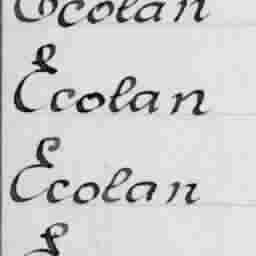 Ecolan
Ecolan
Ecolan